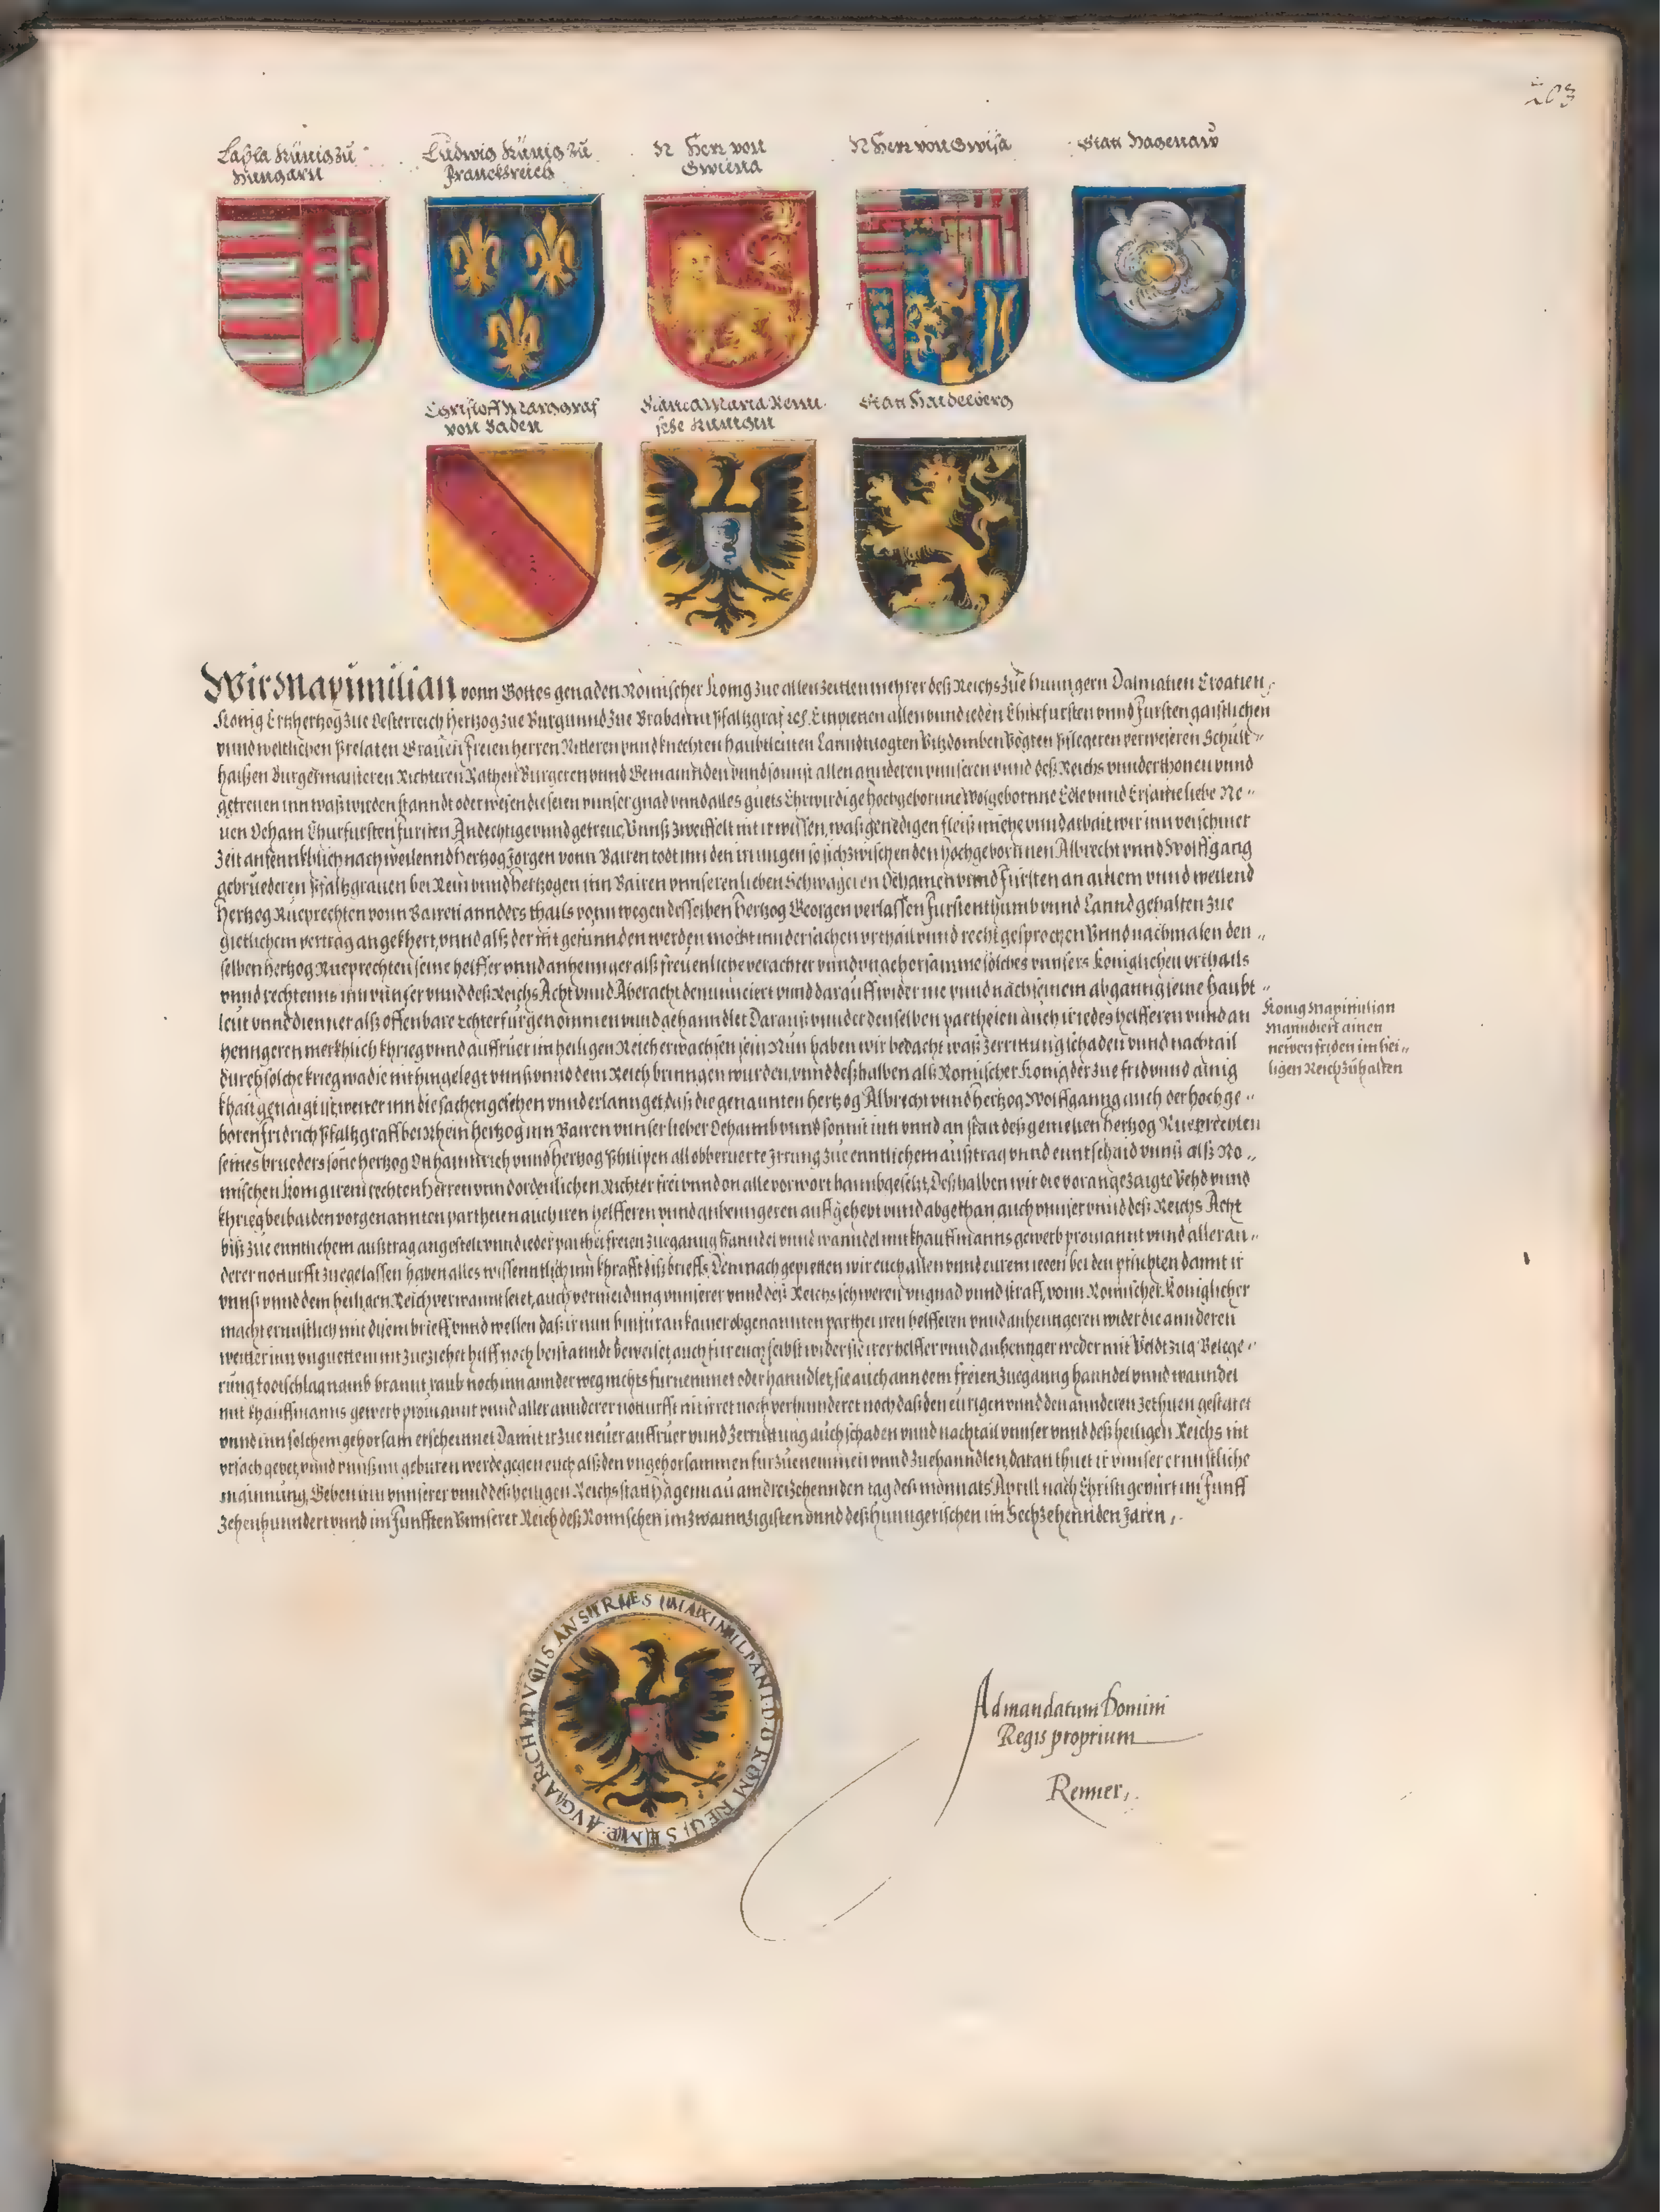 203
Laßla Künig zů
Hungarn
Ludwig Künig zů
Franckhreich
N Herr von
Gwiena
N Herr von Gwisa
Statt Hagenaw
Christoff Marggraf
von Baden
Bianca Maria Remi-
sche Kunigin
Statt Haidelberg
Wir Maximilian vonn Gottes genaden Römischer Konig zue allen zeitten mehrer deß Reichs zue hunngern Dalmatien Croatien
Konig Ertzhertzog zue Oesterreich hertzog zue Burgunnd zue Brabannt Pfaltzgraf ec. Empieten allen vnnd ieden Churfursten vnnd Fursten gaistlichen
vnnd weltlichen Prelaten Grauen freien herren Ritteren vnnd knechten haubtleuten Lanndtuogten Vitzdomben Vögten pflegeren verweseren Schult-
haißen Burgermaisteren Richteren Räthen Burgeren vnnd Gemainden vnnd sonnst allen annderen vnnseren vnnd deß Reichs vnnderthonen vnnd
getreuen inn waß wirden stanndt oder wesen die seien vnnser gnad vnnd alles guets Ehrwirdige hochgebornne Wolgebornne Edle vnnd Ersame liebe Ne-
uen Oeham Churfursten fursten Andechtige vnnd getreue, Vnnß zweiffelt nit ir wissen, waß genedigen fleiß miehe vnnd arbait wir inn verschiner
Zeit anfenncklich nach weilennd hertzog Jörgen vonn Bairen todt inn den irrungen so sich zwischen den hochgebornnen Albrecht vnnd Wolffgang
gebruederen Pfaltzgrauen bei Rein vnnd hertzogen inn Bairen vnnseren lieben Schwageren Oehamen vnnd Fürsten an ainem vnnd weilend
hertzog Rueprechten vonn Bairen annders thails vonn wegen desselben hertzog Georgen verlassen furstenthumb vnnd Lannd gehalten zue
gietlichem vertrag angekhert, vnnd alß der nit gefunnden werden mocht inn der sachen vrthail vnnd recht gesprochen Vnnd nachmalen den-
selben hertzog Rueprechten seine helffer vnnd anhennger alß freuenliche verachter vnnd vngehorsamme solches vnnsers koniglichen vrthails
vnnd rechtenns inn vnnser vnnd deß Reichs Acht vnnd Aberacht denunnciert vnnd darauff wider ine vnnd nach seinem abganng seine haubt-
leut vnnd dienner alß offenbare Echter furgenommen vnnd gehanndlet Darauß vnnder denselben partheien auch iredes helfferen vnnd an
henngeren merkhlich khrieg vnnd auffruer im heiligen Reich erwachsen sein Nun haben wir bedacht waß zerrittung schaden vnnd nachtail
durch solche krieg wa die nit hingelegt vnnß vnnd dem Reich bringen wurden, vnnd deßhalben alß Romischer Konig der zue frid vnnd ainig
khait genaigt ist weiter inn die sachen gesehen vnnd erlannget, daß die genannten hertzog Albrecht vnnd hertzog Wolffganng auch der hochge-
boren fridrich Pfaltzgraff bei Rhein hertzog inn Bairen vnnser lieber Oehaimb vnnd sonnst inn vnnd an statt deß gemelten hertzog Rueprechten
seines brueders söne hertzog Otthainnrich vnnd hertzog Philipen all obberuerte Irrung zue enntlichem außtrag vnnd enntschaid vnnß alß Ro-
mischen konig irem rechten herren vnnd ordenlichen Richter frei vnnd on alle vorwort haimbgesetzt, Deßhalben wir die vorangezaigte Vehd vnnd
khrieg bei baiden vorgenannten partheien auch iren helfferen vnnd anhenngeren auffgehebt vnnd abgethan auch vnnser vnnd deß Reichs Acht
biß zue enntlichem außtrag angestelt vnnd ieder parthei freien zueganng hanndel vnnd wanndel mit khauffmanns gewerb prouiannt vnnd aller an-
derer notturfft zuegelassen haben alles wissenntlich inn khrafft diß brieffs, Demnach gepietten wir euch allen vnnd eurem ieden bei den pflichten damit ir
vnnß vnnd dem heiligen Reich verwannt seiet, auch vermeidung vnnserer vnnd deß Reichs schweren vngnad vnnd straff, vonn Romischer Koniglicher
macht ernnstlich mit disem brieff, vnnd wellen daß ir nun hinfuran kainer obgenannten partheien iren helfferen vnnd anhenngeren wider die annderen
weitter inn vnguettem nit zueziehet hilff noch beistanndt beweiset, auch für euch selbst wider sie irer helffer vnnd anhennger weder mit Veldtzug Belege-
rung todtschlag namb brannt, raub noch inn annder weg nichts furnemmet oder hanndlet, sie auch ann dem freien zueganng hanndel vnnd wanndel
mit khauffmanns gewerb prouiannt vnnd aller annderer notturfft nit irret noch verhinnderet noch daß den eurigen vnnd den annderen zethuen gestatet
vnnd inn solchem gehorsam erscheinnet, Damit ir zue neuer auffruer vnnd zerrittung auch schaden vnnd nachtail vnnser vnnd deß heiligen Reichs nit
vrsach gebet, vnnd vnnß nit geburen werde gegen euch alß den vngehorsammen furzuenemmen vnnd zuehanndlen, daran thuet ir vnnser ernnstliche
mainnung, Geben inn vnnserer vnnd deß heiligen Reichs statt Hagenau am dreizehennden tag deß monnats Aprill nach Christi gepurt im Funff
zehenhunndert vnnd im Funfften Vnnserer Reich deß Romischen im zwainnzigisten vnnd deß hunngerischen im Sechzehennden Jaren,
Konig Maximilian
Manndiert ainen
newen friden im hei-
ligen Reich zůhalten
Ad mandatum Domini
Regis proprium
Renner,